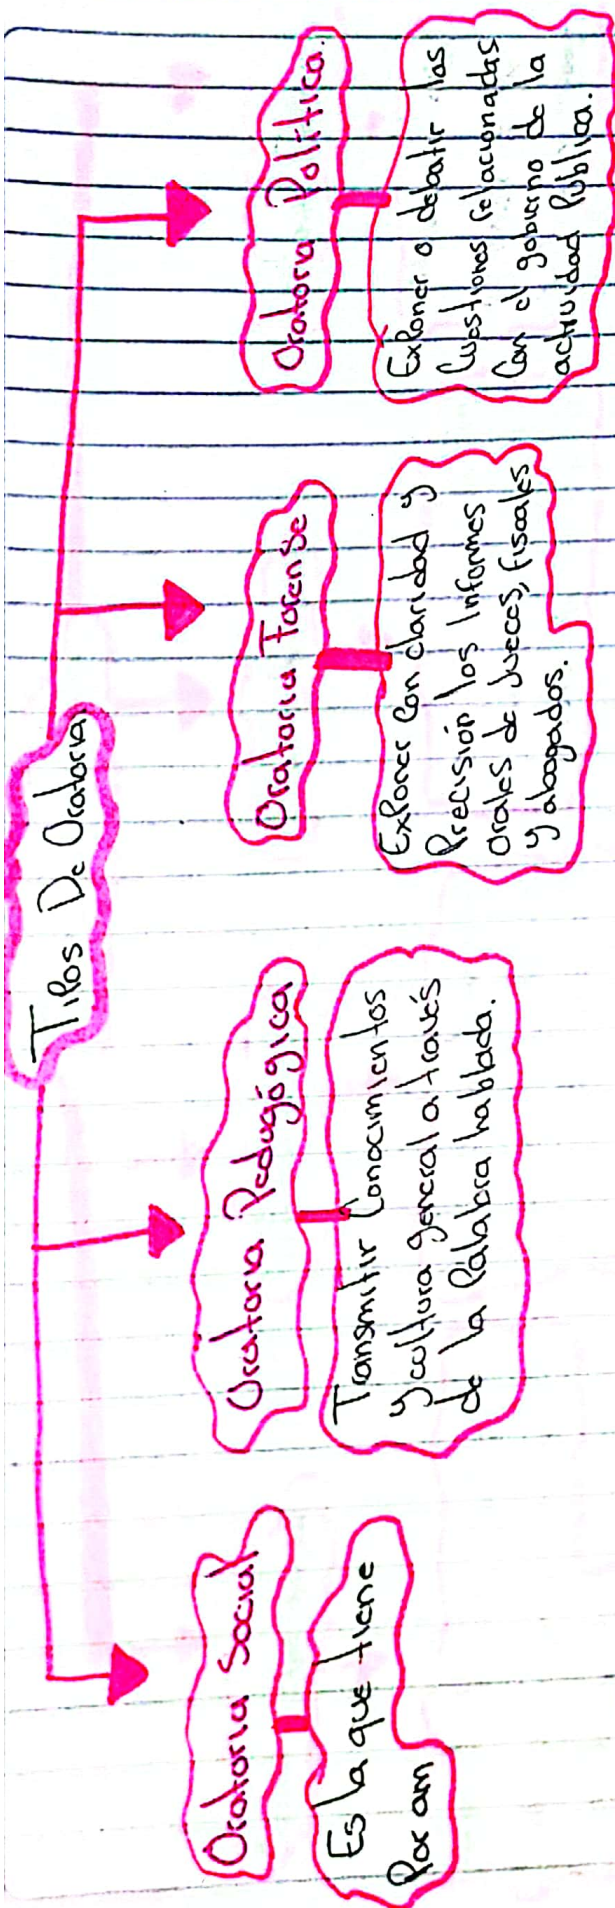 Tipos De Oratoria
Oratoria Social
Es la que tiene
Por am
Oratoria Pedagógica
Transmitir Conocimientos
y cultura general a través
de la Palabra hablada.
Oratoria Forense
Exponer Con claridad y
Precisión los Informes
orales de Jueces, fiscales
y abogados.
Oratoria Política.
Exponer o debatir las
Cuestiones relacionadas
Con el gobierno de la
actividad Pública.